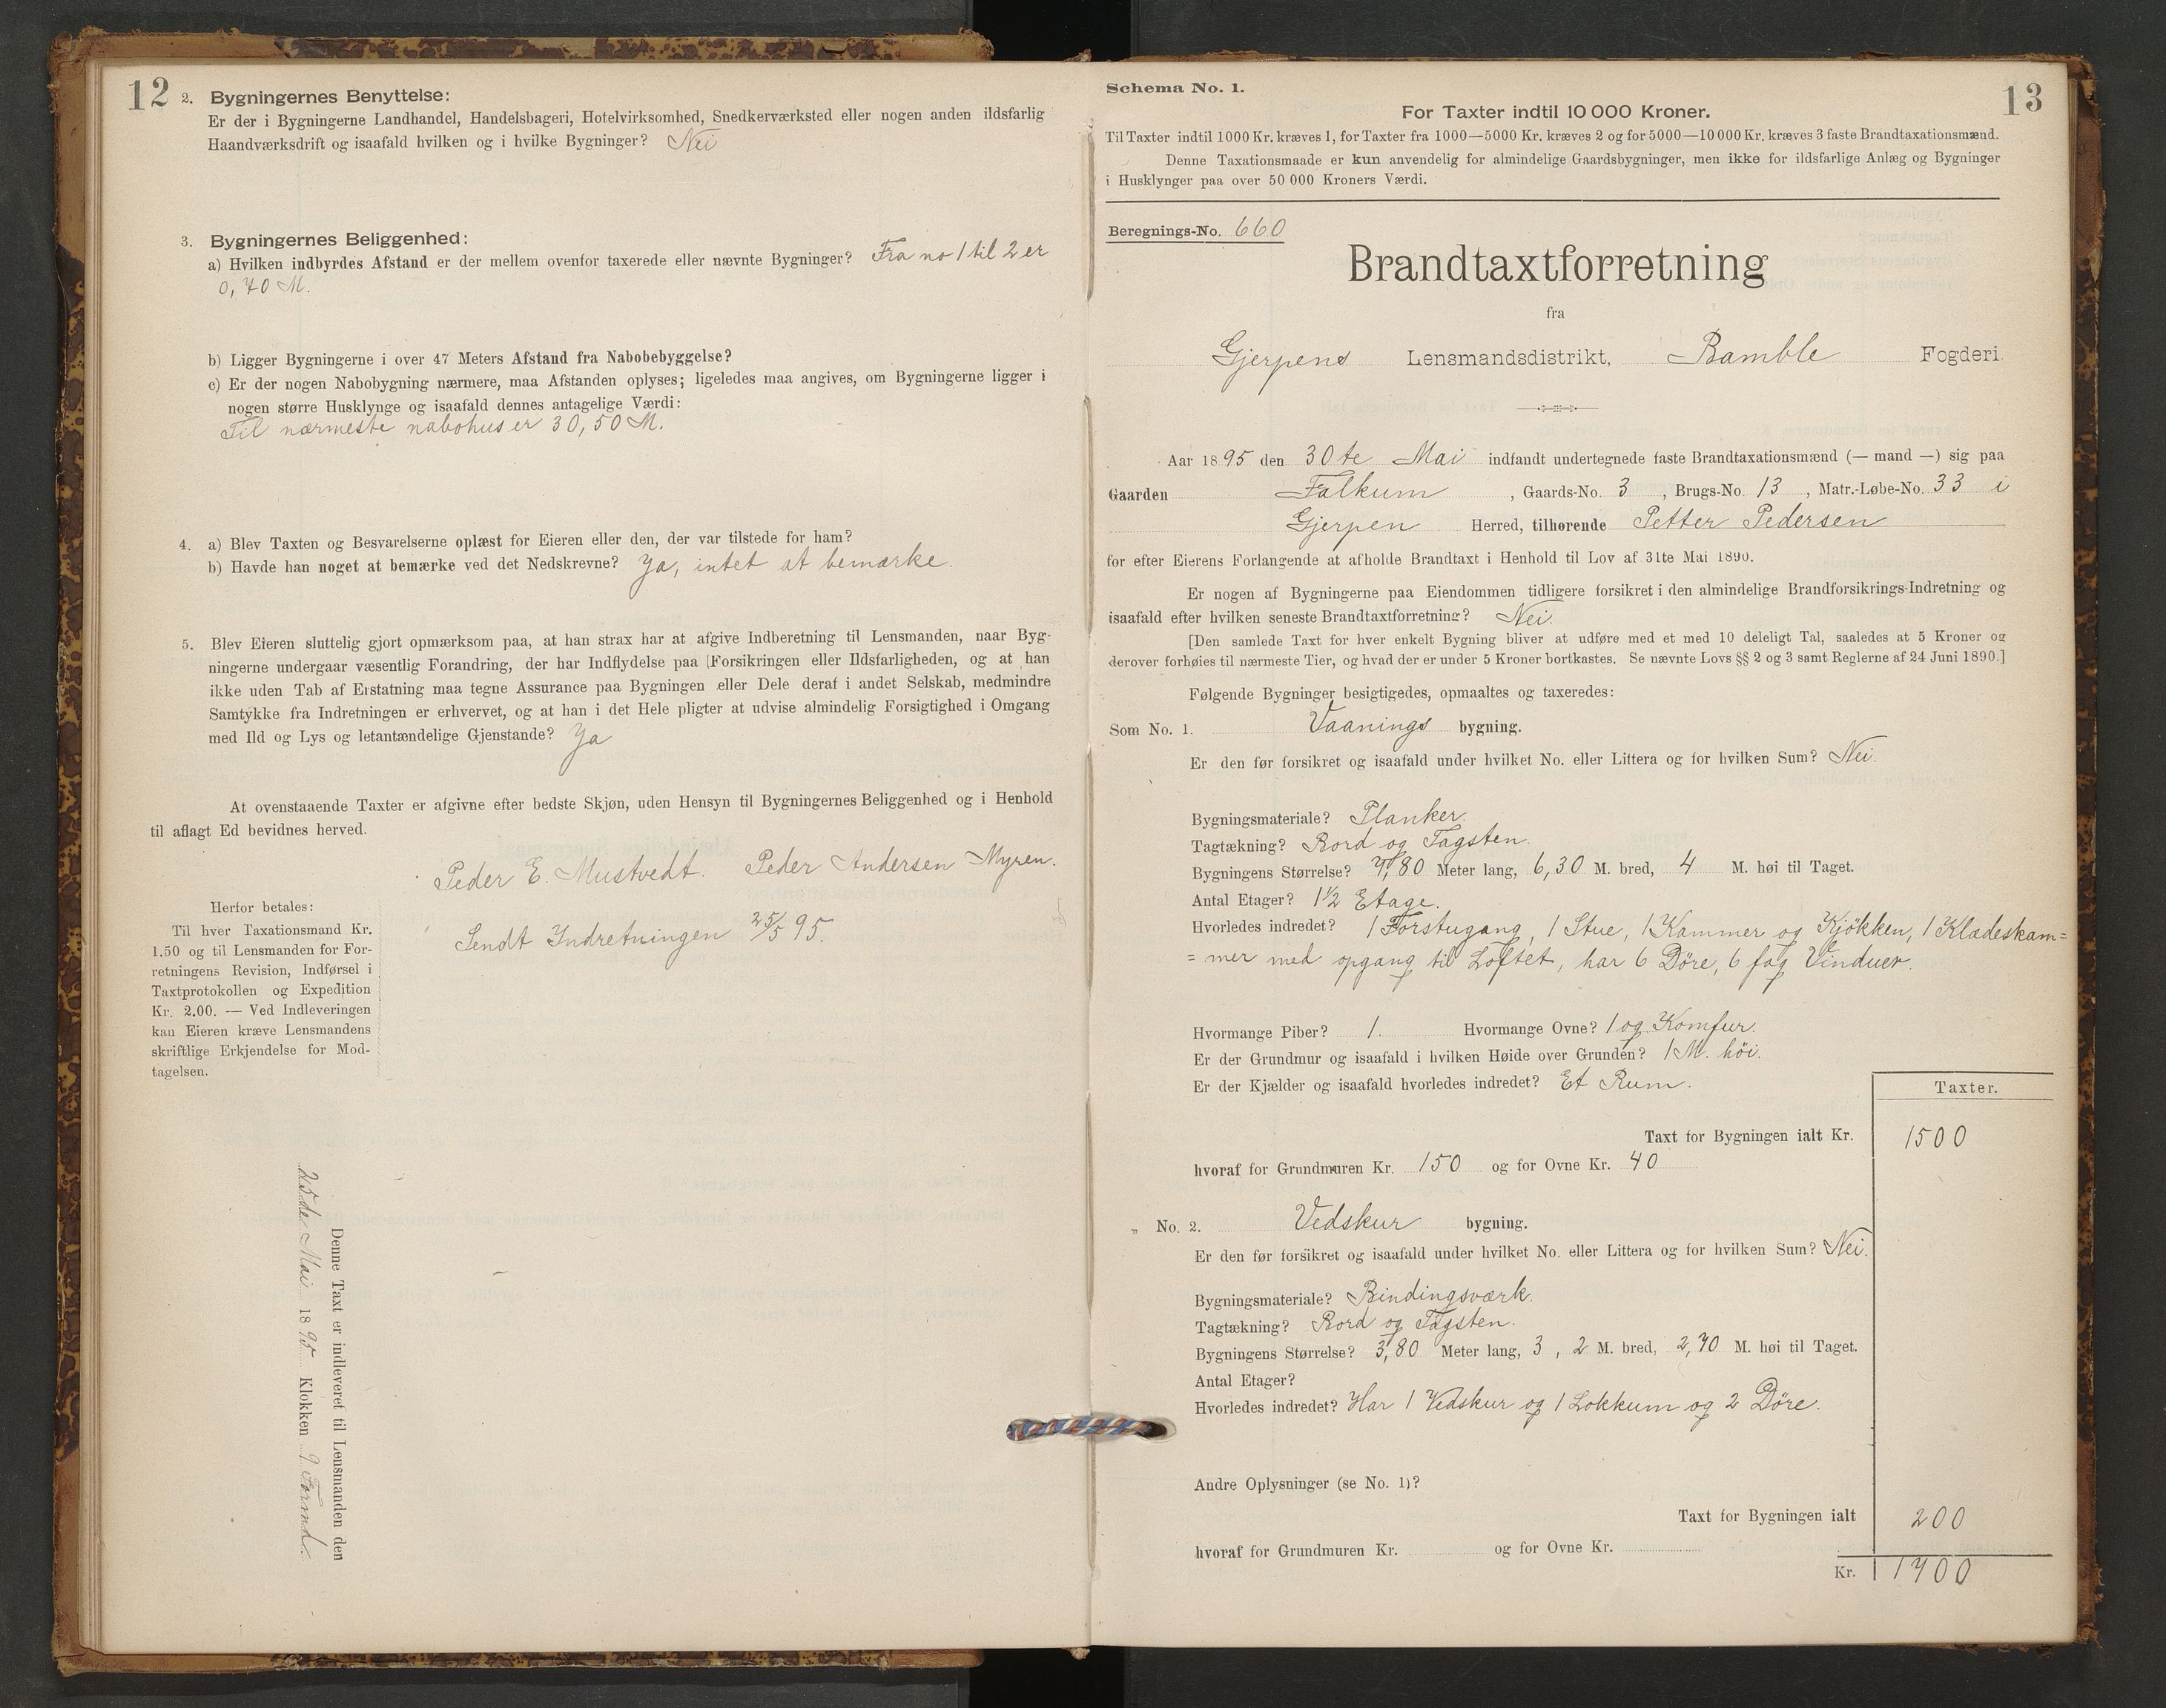 12
2. Bygningernes Benyttelse:
Er der i Bygningerne Landhandel, Handelsbageri, Hotelvirksomhed, Snedkerværksted eller nogen anden ildsfarlig
Haandværksdrift og isaafald hvilken og i hvilke Bygninger? Nei
3. Bygningernes Beliggenhed:
a) Hvilken indbyrdes Afstand er der mellem ovenfor taxerede eller nævnte Bygninger? Fra no 1 til 2 er
0,70 M.
b) Ligger Bygningerne i over 47 Meters Afstand fra Nabobebyggelse?
c) Er der nogen Nabobygning nærmere, maa Afstanden oplyses; ligeledes maa angives, om Bygningerne ligger i
nogen større Husklynge og isaafald dennes antagelige Værdi:
Til nærmeste nabohus er 30,50 M.
4. a) Blev Taxten og Besvarelserne oplæst for Eieren eller den, der var tilstede for ham?
b) Havde han noget at bemærke ved det Nedskrevne? Ja, intet at bemærke.
5. Blev Eieren sluttelig gjort opmærksom paa, at han strax har at afgive Indberetning til Lensmanden, naar Byg-
ningerne undergaar væsentlig Forandring, der har Indflydelse paa Forsikringen eller Ildsfarligheden, og at han
ikke uden Tab af Erstatning maa tegne Assurance paa Bygningen eller Dele deraf i andet Selskab, medmindre
Samtykke fra Indretningen er erhvervet, og at han i det Hele pligter at udvise almindelig Forsigtighed i Omgang
med Ild og Lys og letantændelige Gjenstande? Ja
At ovenstaaende Taxter er afgivne efter bedste Skjøn, uden Hensyn til Bygningernes Beliggenhed og i Henhold
til aflagt Ed bevidnes herved.
Peder E. Mustvedt. Peder Andersen Myren.
Sendt Indretningen 25/5 95.
Herfor betales:
Til hver Taxationsmand Kr.
1.50 og til Lensmanden for For-
retningens Revision, Indførsel i
Taxtprotokollen og Expedition
Kr. 2.00. — Ved Indleveringen
kan Eieren kræve Lensmandens
skriftlige Erkjendelse for Mod-
tagelsen.
Denne Taxt er indleveret til Lensmanden den
25de Mai 1895 Klokken 9 Formd.
Schema No. 1.
13
For Taxter indtil 10 000 Kroner.
Til Taxter indtil 1000 Kr. kræves 1, for Taxter fra 1000—5000 Kr. kræves 2 og for 5000—10 000 Kr. kræves 3 faste Brandtaxationsmænd.
Denne Taxationsmaade er kun anvendelig for almindelige Gaardsbygninger, men ikke for ildsfarlige Anlæg og Bygninger
i Husklynger paa over 50 000 Kroners Værdi.
Beregnings-No. 660
Brandtaxtforretning
fra
Gjerpens Lensmandsdistrikt, Bamble Fogderi
Aar 1895 den 30te Mai indfandt undertegnede faste Brandtaxationsmænd (— mand —) sig paa
Gaarden Falkum, Gaards-No. 3, Brugs-No. 13, Matr.-Løbe-No. 33 i
Gjerpen Herred, tilhørende Petter Pedersen
for efter Eierens Forlangende at afholde Brandtaxt i Henhold til Lov af 31te Mai 1890.
Er nogen af Bygningerne paa Eiendommen tidligere forsikret i den almindelige Brandforsikrings-Indretning og
isaafald efter hvilken seneste Brandtaxtforretning? Nei.
[Den samlede Taxt for hver enkelt Bygning bliver at udføre med et med 10 deleligt Tal, saaledes at 5 Kroner og
derover forhøies til nærmeste Tier, og hvad der er under 5 Kroner bortkastes. Se nævnte Lovs §§ 2 og 3 samt Reglerne af 24 Juni 1890.]
Følgende Bygninger besigtigedes, opmaaltes og taxeredes:
Som No. 1. Vaanings bygning.
Er den før forsikret og isaafald under hvilket No. eller Littera og for hvilken Sum? Nei.
Bygningsmateriale? Planker.
Tagtækning? Bord og Tagsten.
Bygningens Størrelse? 7,80 Meter lang, 6,30 M. bred, 4 M. høi til Taget.
Antal Etager? 1 1/2 Etage.
Hvorledes indredet? 1 Forstugang, 1 Stue, 1 Kammer og Kjökken, 1 Klædeskam=
=mer med opgang til Loftet, har 6 Döre, 6 fag Vinduer.
Hvormange Piber? 1. Hvormange Ovne? 1 og Komfur.
Er der Grundmur og isaafald i hvilken Høide over Grunden? 1 M. höi.
Er der Kjælder og isaafald hvorledes indredet? Et Rum.
Taxter.
Taxt for Bygningen ialt Kr. 1500
hvoraf for Grundmuren Kr. 150 og for Ovne Kr. 40
„ No. 2. Vedskur bygning.
Er den før forsikret og isaafald under hvilket No. eller Littera og for hvilken Sum? Nei.
Bygningsmateriale? Bindingsværk.
Tagtækning? Bord og Tagsten.
Bygningens Størrelse? 3,80 Meter lang, 3,2 M. bred, 2,70 M. høi til Taget.
Antal Etager?
Hvorledes indredet? Har 1 Vedskur og 1 Lokkum og 2 Döre.
Andre Oplysninger (se No. 1)?
Taxt for Bygningen ialt 200
hvoraf for Grundmuren Kr. og for Ovne Kr.
Kr. 1700